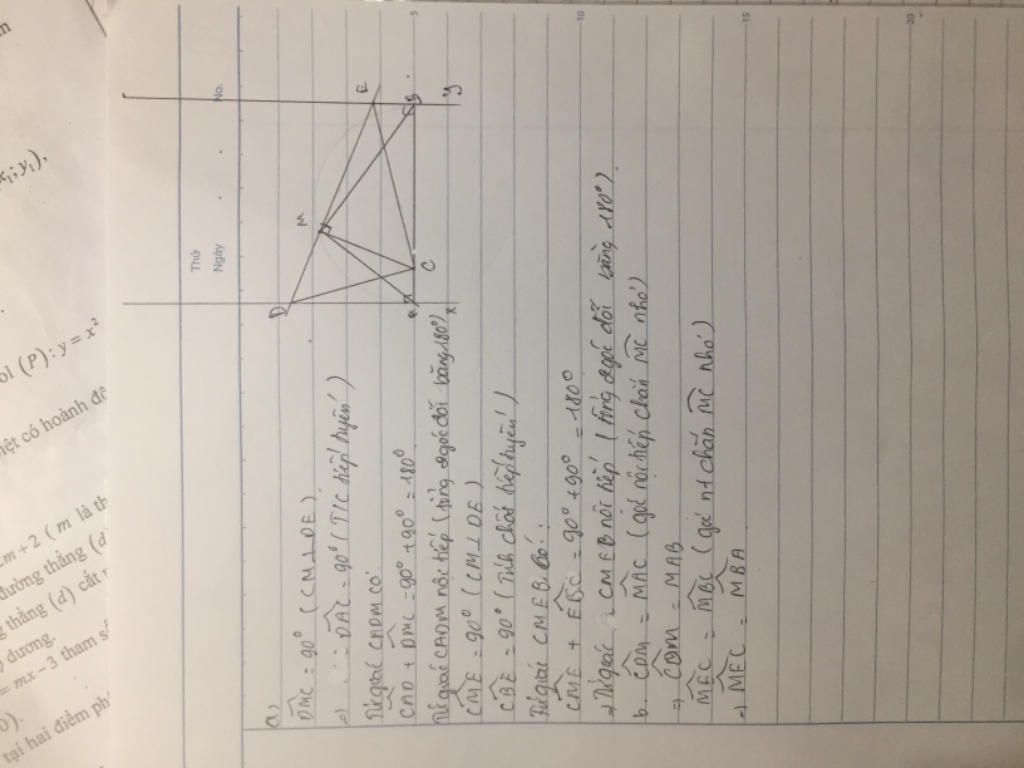 Thứ
Ngày
No.
5
10
15
20
D
M
E
A
C
B
x
y
a)
DMC = 90° (CM ⊥ DE)
=) DAC = 90° (T/C tiếp tuyến)
Tứ giác CADM có:
CAD + DMC = 90° + 90° = 180°
Tứ giác CADM nội tiếp (tổng 2 góc đối bằng 180°)
CME = 90° (CM ⊥ DE)
CBE = 90° (Tính chất tiếp tuyến)
Tứ giác CMEB có:
CME + EBC = 90° + 90° = 180°
=) Tứ giác CMEB nội tiếp (tổng 2 góc đối bằng 180°).
b. CDM = MAC (góc nội tiếp chắn MC nhỏ)
=) CDM = MAB
MEC = MBC (góc nt chắn MC nhỏ)
=) MEC = MBA
y₁),
(P): y = x²
có hoành
m + 2 ( m là
đường thẳng (d
thẳng (d) cắt
dương.
= mx − 3 tham
tại hai điểm